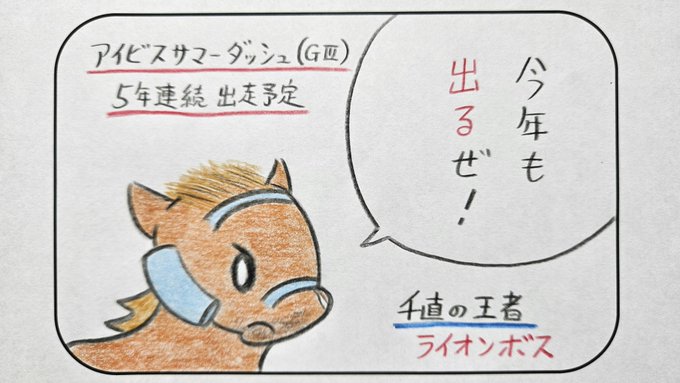 アイビスサマーダッシュ(GⅢ)
5年連続 出走予定
今年も
出るぜ!
千直の王者
ライオンボス